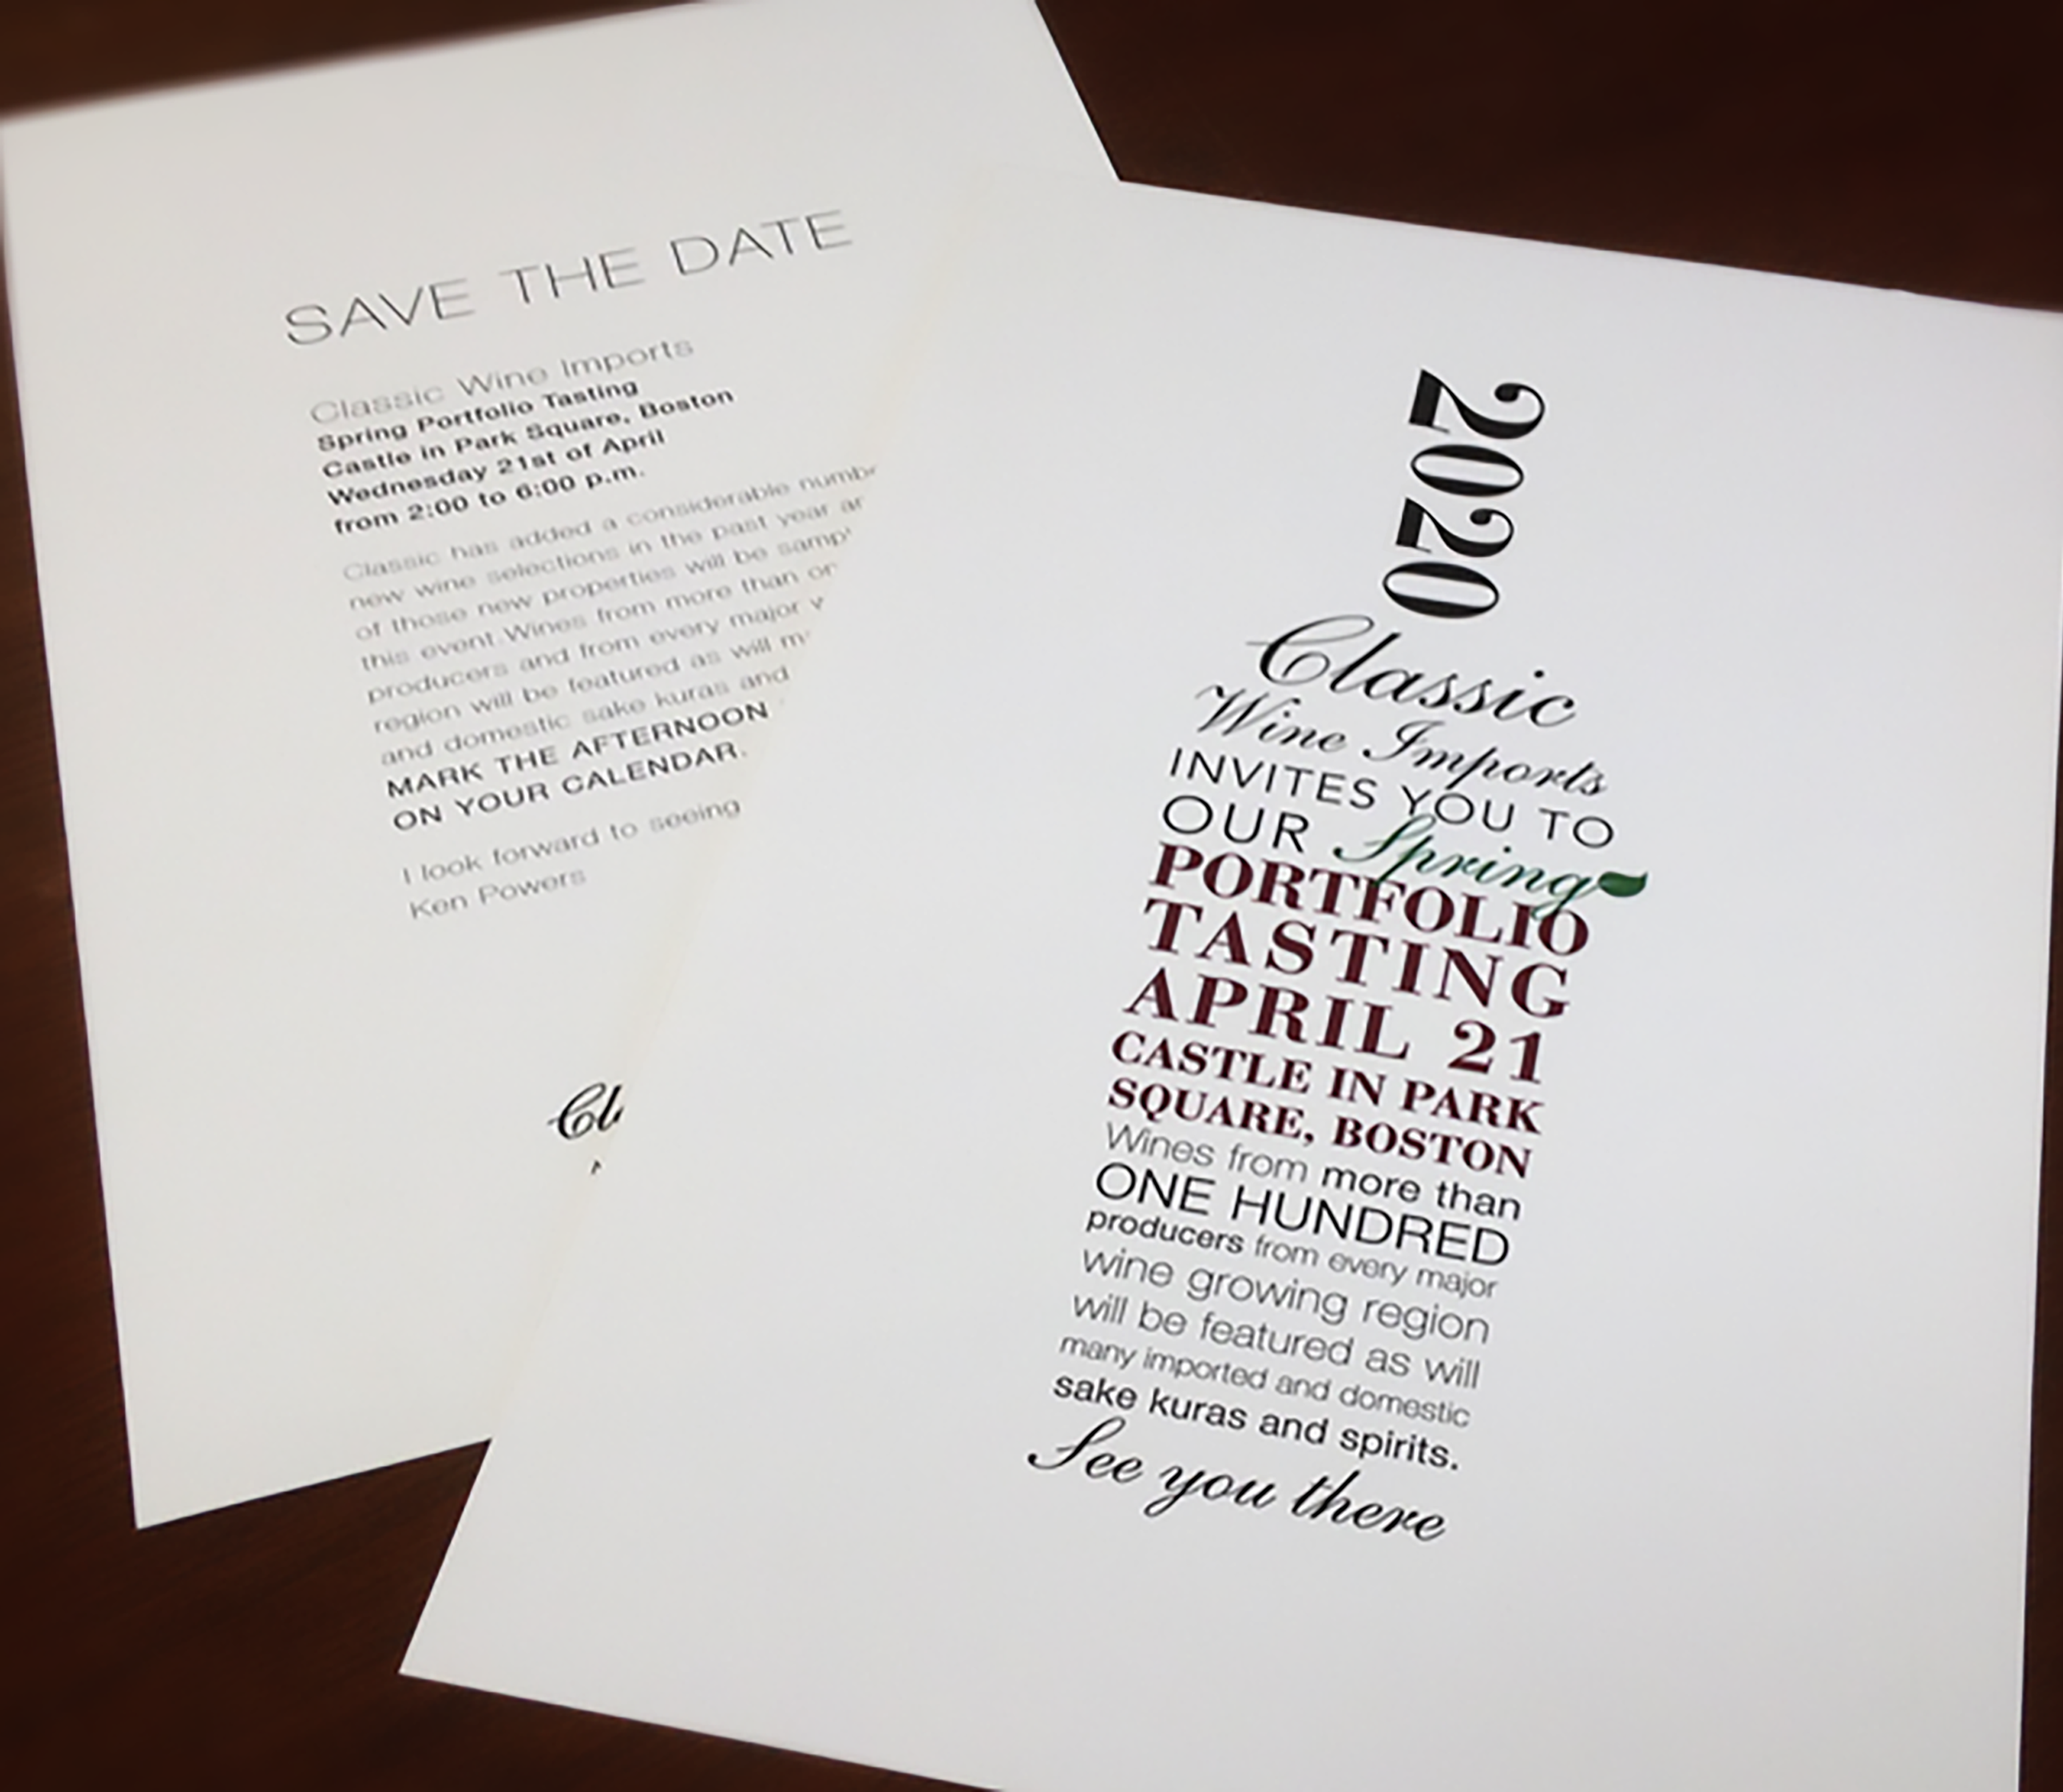 SAVE THE DATE
Classic Wine Imports
Spring Portfolio Tasting
Castle in Park Square, Boston
Wednesday 21st of April
from 2:00 to 6:00 p.m.
Classic has added a considerable
new wine selections in the past year
of those new properties will be
this event. Wines from more than
producers and from every major
region will be featured as will
and domestic sake kuras and
MARK THE AFTERNOON
ON YOUR CALENDAR.
I look forward to seeing
Ken Powers
2020
Classic
Wine Imports
INVITES YOU TO
OUR Spring
PORTFOLIO
TASTING
APRIL 21
CASTLE IN PARK
SQUARE, BOSTON
Wines from more than
ONE HUNDRED
producers from every major
wine growing region
will be featured as will
many imported and domestic
sake kuras and spirits.
See you there